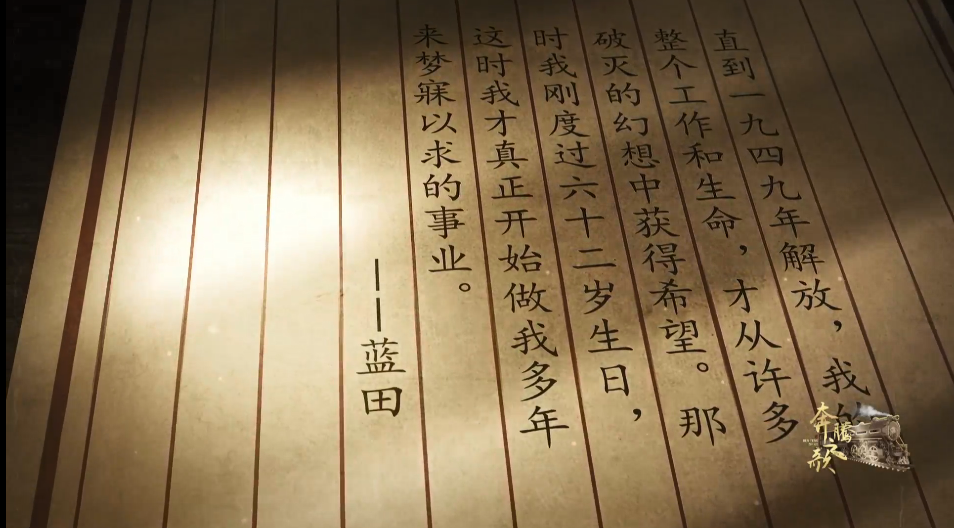 直到一九四九年解放，我的
整个工作和生命，才从许多
破灭的幻想中获得希望。那
时我刚度过六十二岁生日，
这时我才真正开始做我多年
来梦寐以求的事业。
——蓝田
奔腾之歌